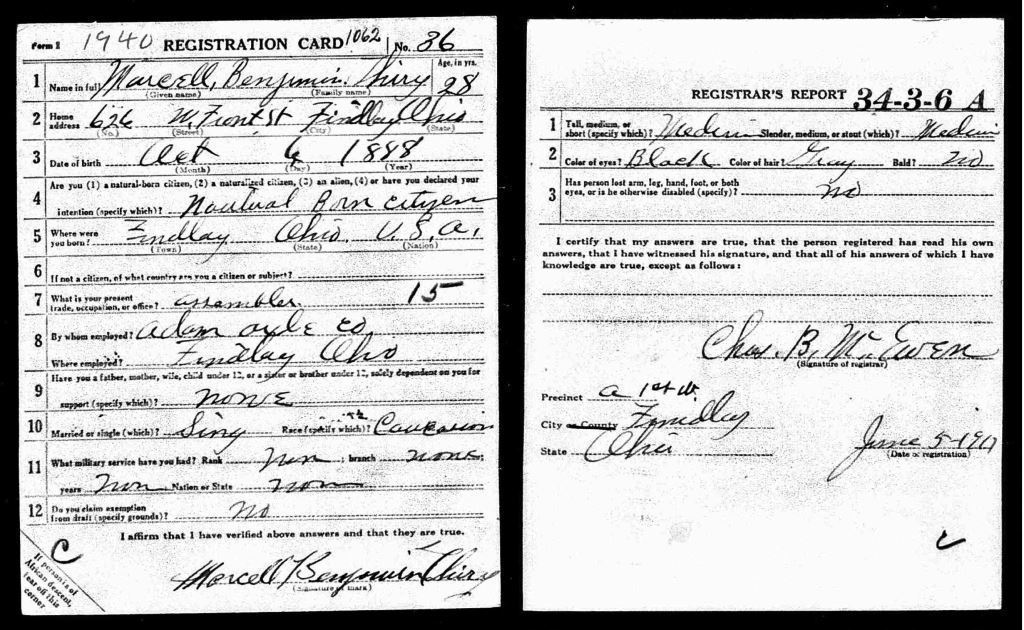 Form 1 1940 REGISTRATION CARD 1062 No. 36
1 Name in full Marcell, Benjimin. Shiry Age, in yrs. 28
(Given name) (Family name)
2 Home address 626 W. Front St Findlay Ohio
(No.) (Street) (City) (State)
3 Date of birth Oct 6 1888
(Month) (Day) (Year)
4 Are you (1) a natural-born citizen, (2) a naturalized citizen, (3) an alien, (4) or have you declared your
intention (specify which)? Nautural Born citizen
5 Where were you born? Findlay Ohio. U.S.A.
(Town) (State) (Nation)
6 If not a citizen, of what country are you a citizen or subject?
7 What is your present trade, occupation, or office? assembler 15
8 By whom employed? Adam co.
Where employed? Findlay Ohio
9 Have you a father, mother, wife, child under 12, or a sister or brother under 12, solely dependent on you for
support (specify which)? none
10 Married or single (which)? Sing Race (specify which)? Caucasion
11 What military service have you had? Rank non ; branch none;
years non Nation or State non
12 Do you claim exemption from draft (specify grounds)? No
I affirm that I have verified above answers and that they are true.
C
If person is of
African descent,
tear off this
corner
Marcell Benjimin Shiry
(Signature or mark)
REGISTRAR'S REPORT 34-3-6 A
1 Tall, medium, or short (specify which)? Medium Slender, medium, or stout (which)? Medium
2 Color of eyes? Black Color of hair? Gray Bald? no
3 Has person lost arm, leg, hand, foot, or both
eyes, or is he otherwise disabled (specify)? no
I certify that my answers are true, that the person registered has read his own
answers, that I have witnessed his signature, and that all of his answers of which I have
knowledge are true, except as follows:
Chas. B. McEwen
(Signature of registrar)
Precinct a 1st w.
City or County Findlay
State Ohio June 5-1917
(Date of registration)